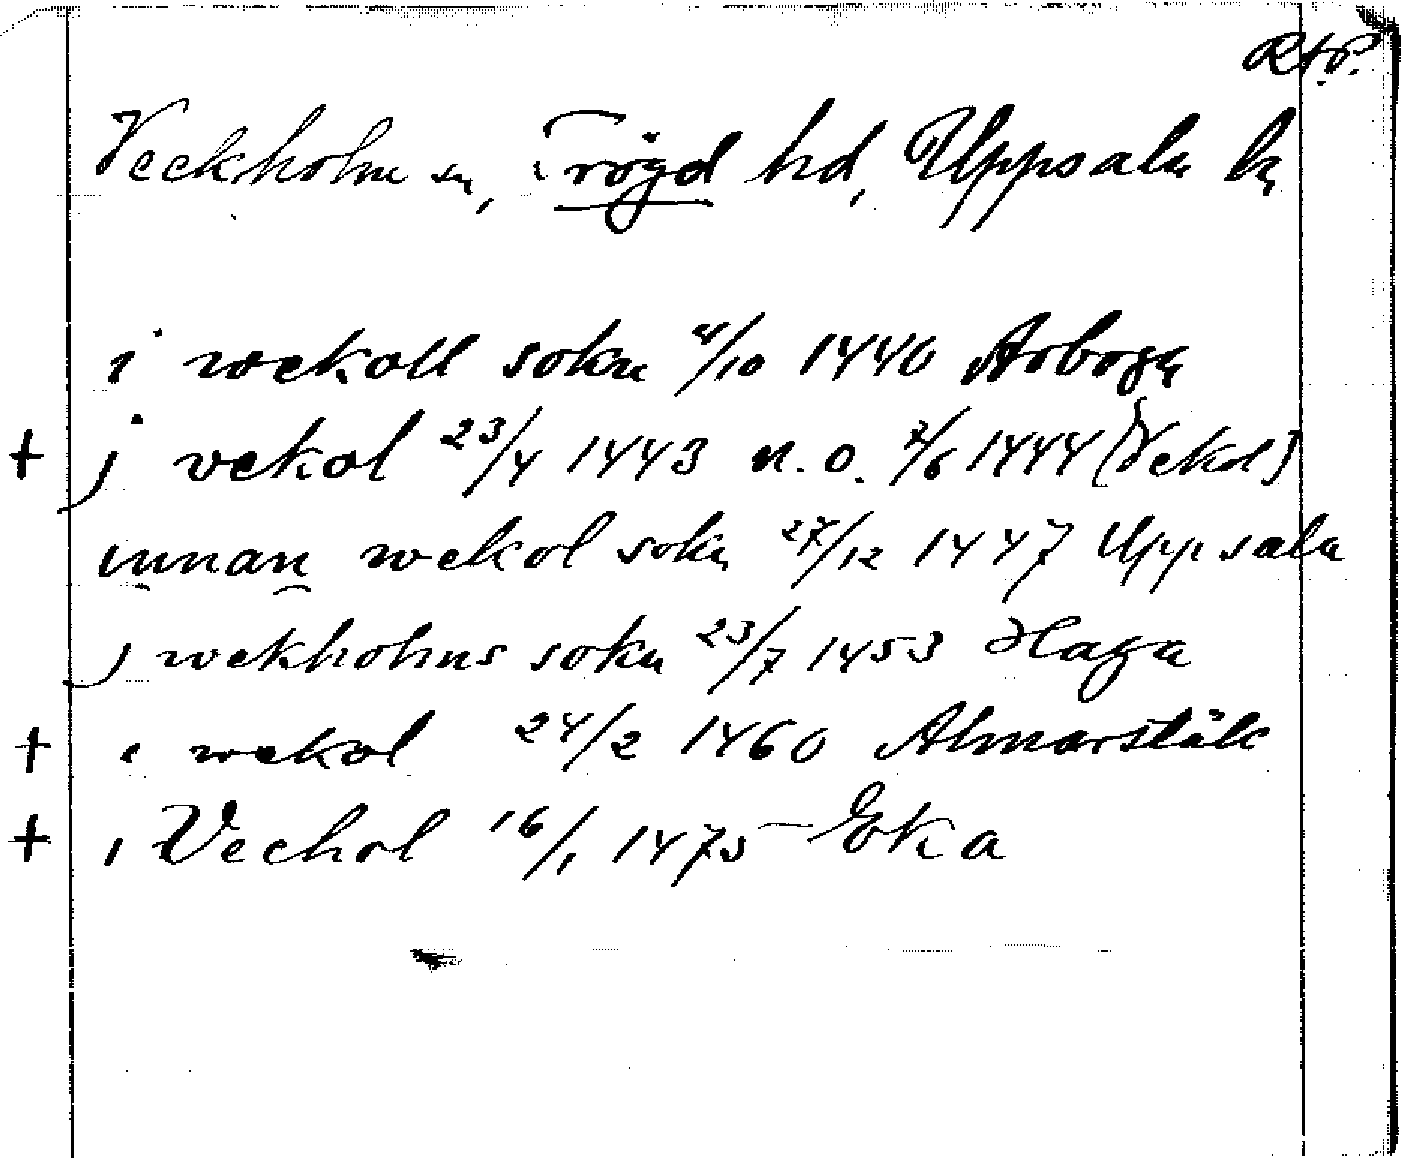 RAP.
Veckholm sn, Trögd hd, Uppsala l.
i wekoll sokn 4/10 1440 Arboga
+ j vekol 23/4 1443 n. o. 7/6 1444 (Vekol)
innan wekol sokn 27/12 1447 Uppsala
j wekholms sokn 23/7 1453 Haga
+ i wekol 24/2 1460 Almarstäk
+ i Vechol 16/1 1475 Eka